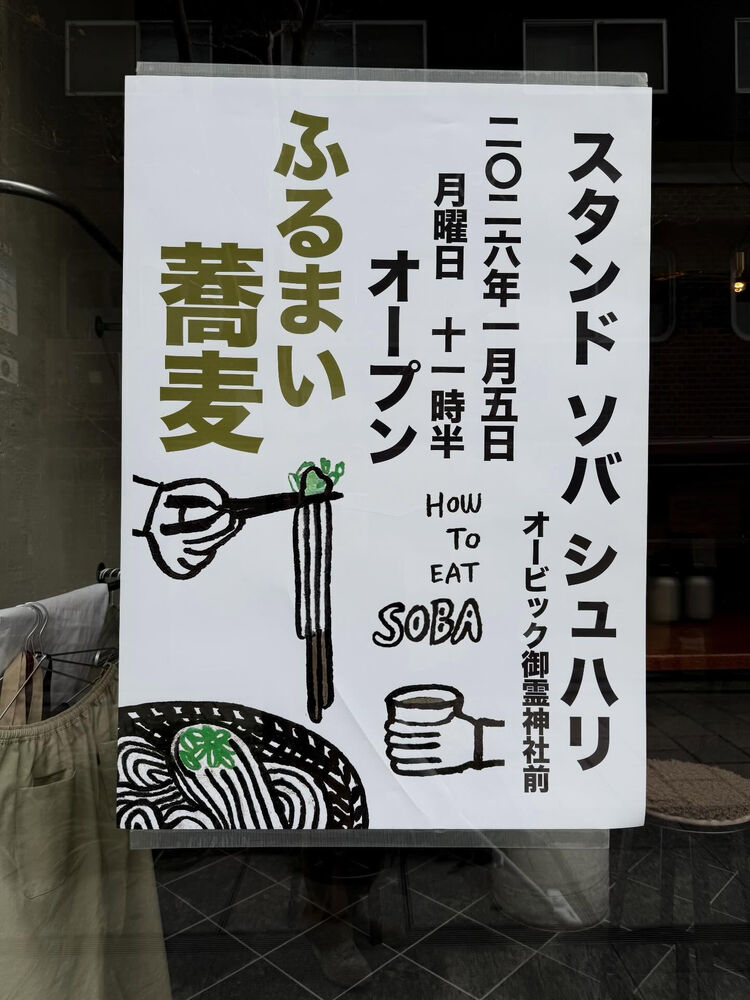 スタンド ソバ シュハリ
オービック御霊神社前
二〇二六年一月五日
月曜日 十一時半
オープン
ふるまい
蕎麦
HOW
TO
EAT
SOBA